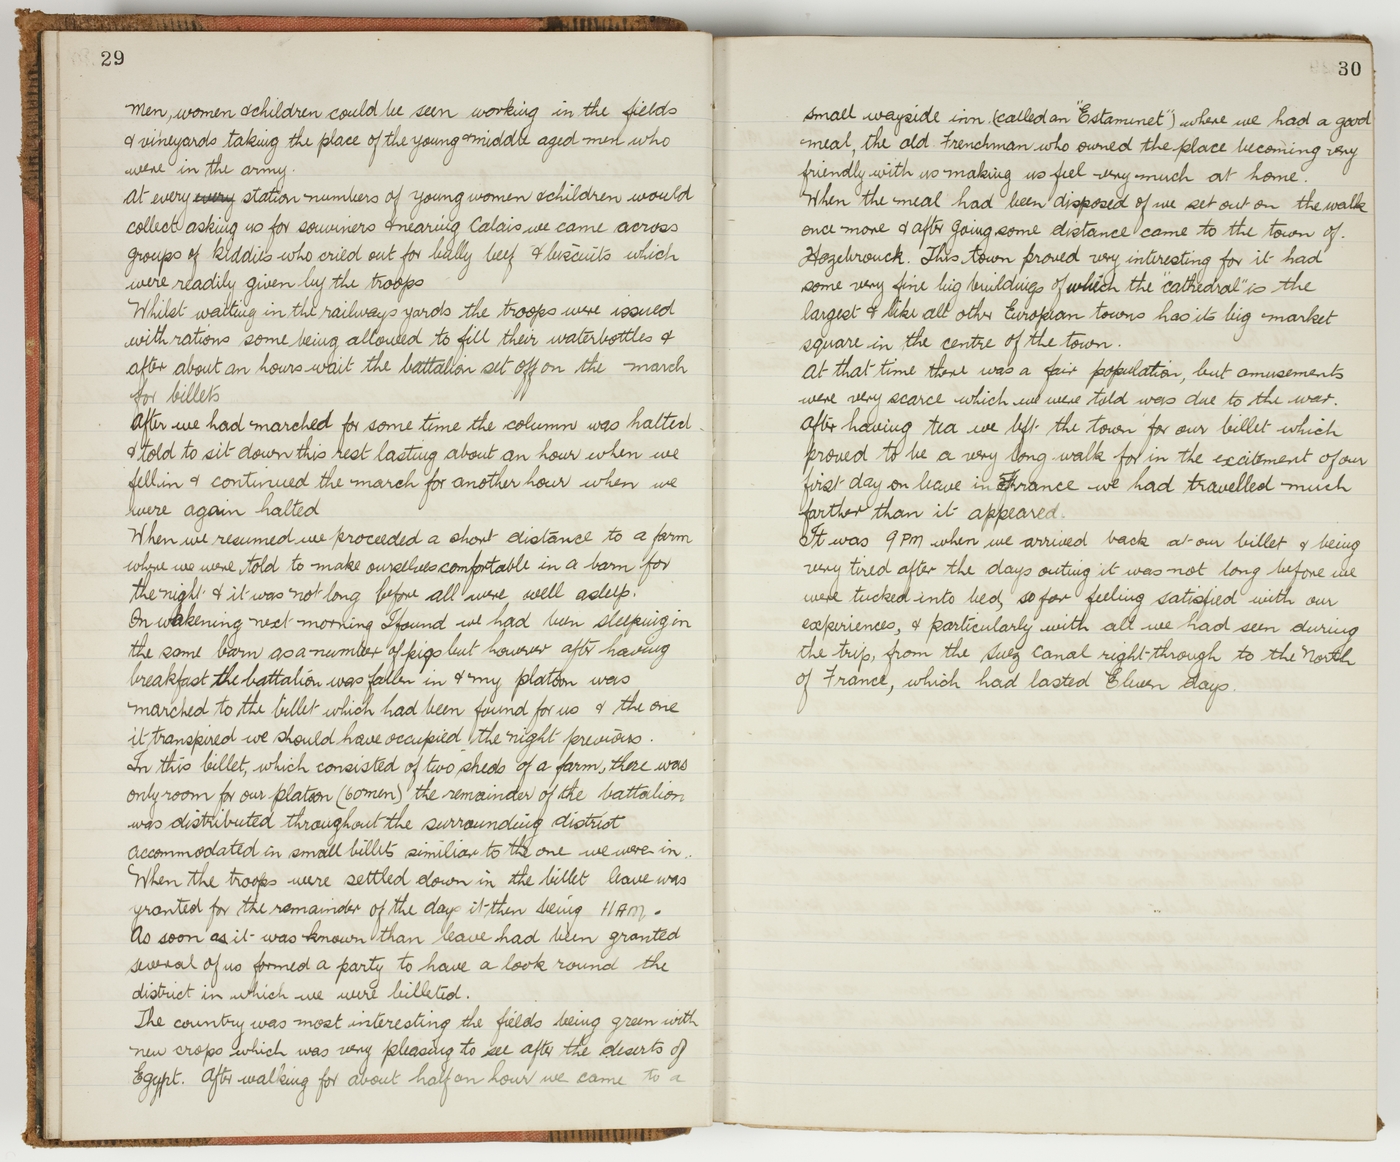 29
Men, women & children could be seen working in the fields
& vineyards taking the place of the young & middle aged men who
were in the army.
At every every station numbers of young women & children would
collect asking us for souviners & nearing Calais we came across
groups of kiddies who cried out for bully beef & biscuits which
were readily given by the troops
Whilst waiting in the railways yards the troops were issued
with rations some being allowed to fill their waterbottles &
after about an hours wait the battalion set off on the march
for billets
After we had marched for some time the column was halted
& told to sit down this rest lasting about an hour when we
fell in & continued the march for another hour when we
were again halted
When we resumed we proceeded a short distance to a farm
where we were told to make ourselves comfortable in a barn for
the night & it was not long before all were well asleep.
On wakening next morning I found we had been sleeping in
the same barn as a number of pigs but however after having
breakfast the battalion was fallen in & my platoon was
marched to the billet which had been found for us & the one
it transpired we should have occupied the night previous.
In this billet, which consisted of two sheds of a farm, there was
only room for our platoon (60 men) the remainder of the battalion
was distributed throughout the surrounding district
accommodated in small billets similiar to the one we were in.
When the troops were settled down in the billet leave was
granted for the remainder of the day it then being 11 AM.
As soon as it was known than leave had been granted
several of us formed a party to have a look round the
district in which we were billeted.
The country was most interesting the fields being green with
new crops which was very pleasing to see after the deserts of
Egypt. After walking for about half an hour we came to a
30
small wayside inn (called an "Estaminet") where we had a good
meal, the old Frenchman who owned the place becoming very
friendly with us making us feel very much at home.
When the meal had been disposed of we set out on the walk
once more & after going some distance came to the town of
Hazebrouck. This town proved very interesting for it had
some very fine big buildings of which the "cathedral" is the
largest & like all other European towns has its big market
square in the centre of the town.
At that time there was a fair population, but amusements
were very scarce which we were told was due to the war.
After having tea we left the town for our billet which
proved to be a very long walk for in the excitement of our
first day on leave in France we had travelled much
farther than it appeared.
It was 9 PM when we arrived back at our billet & being
very tired after the days outing it was not long before we
were tucked into bed, so far feeling satisfied with our
experiences, & particularly with all we had seen during
the trip, from the Suez Canal right through to the North
of France, which had lasted Eleven days.